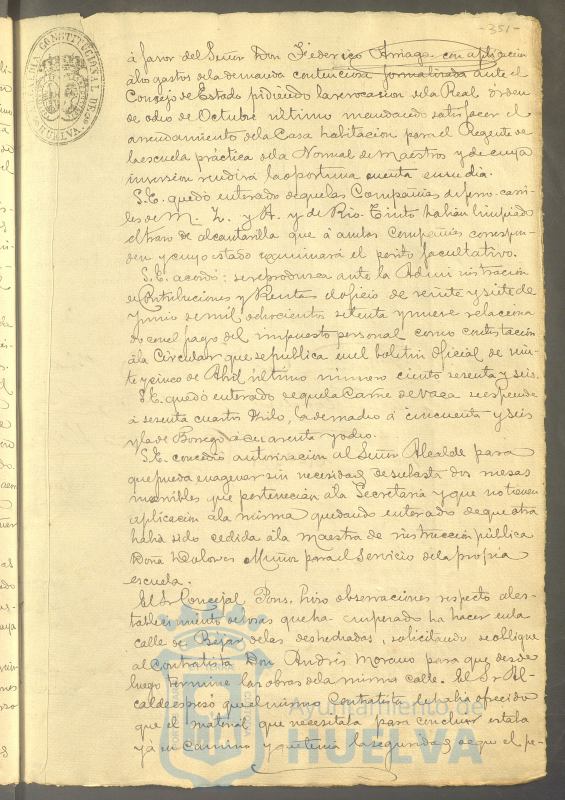 -351-
ALCALDIA CONSTITUCIONAL DE HUELVA
á favor del Señor Don Federico Arriaga con aplicacion
á los gastos de la demanda contenciosa formalizada ante el
Consejo de Estado pidiendo la revocacion de la Real órden
de ocho de Octubre último mandando satisfacer el
arrendamiento de la Casa habitacion para el Regente de
la escuela práctica de la Normal de Maestros y de cuya
inversion rendirá la oportuna cuenta en su dia.
S.E. quedó enterado de que las Compañias de ferro-carri-
les de M. Z. y A. y de Rio-Tinto habian limpiado
el trozo de alcantarilla que á ambas Compañias correspon-
den y cuyo estado examinará el perito facultativo.
S.E. acordó: se reproduzca ante la Administracion
de Contribuciones y Rentas el oficio de veinte y siete de
Junio de mil ochocientos setenta y nueve relaciona
do con el pago del impuesto personal como contestacion
á la Circular que se publica en el boletin Oficial de vein-
te y cinco de Abril último número ciento sesenta y seis.
S.E. quedó enterado de que la Carne de vaca se expende
á sesenta cuartos Kilo, la de macho á cincuenta y seis
y la de Borrego á cuarenta y ocho.
S.E. concedió autorizacion al Señor Alcalde para
que pueda enagenar sin necesidad de subasta dos mesas
inservibles que pertenecian á la Secretaria y que no tienen
aplicacion á la misma quedando enterado de que otra
habia sido cedida á la maestra de instruccion pública
Doña Dolores Muñoz para el servicio de la propia
escuela.
El Sr Concejal Pons, hizo observaciones respecto al es-
tablecimiento de losas que ha empezado ha hacer en la
calle de Bejar de las deshechadas, solicitando se obligue
al Contratista Don Andrés Morano para que desde
luego termine las obras de la misma calle. El Sr Al-
calde expresó que el mismo Contratista le habia ofrecido
que el material que necesitaba para concluir estaba
yá en camino y que tenia la seguridad de que el pe-
Ayuntamiento de
HUELVA